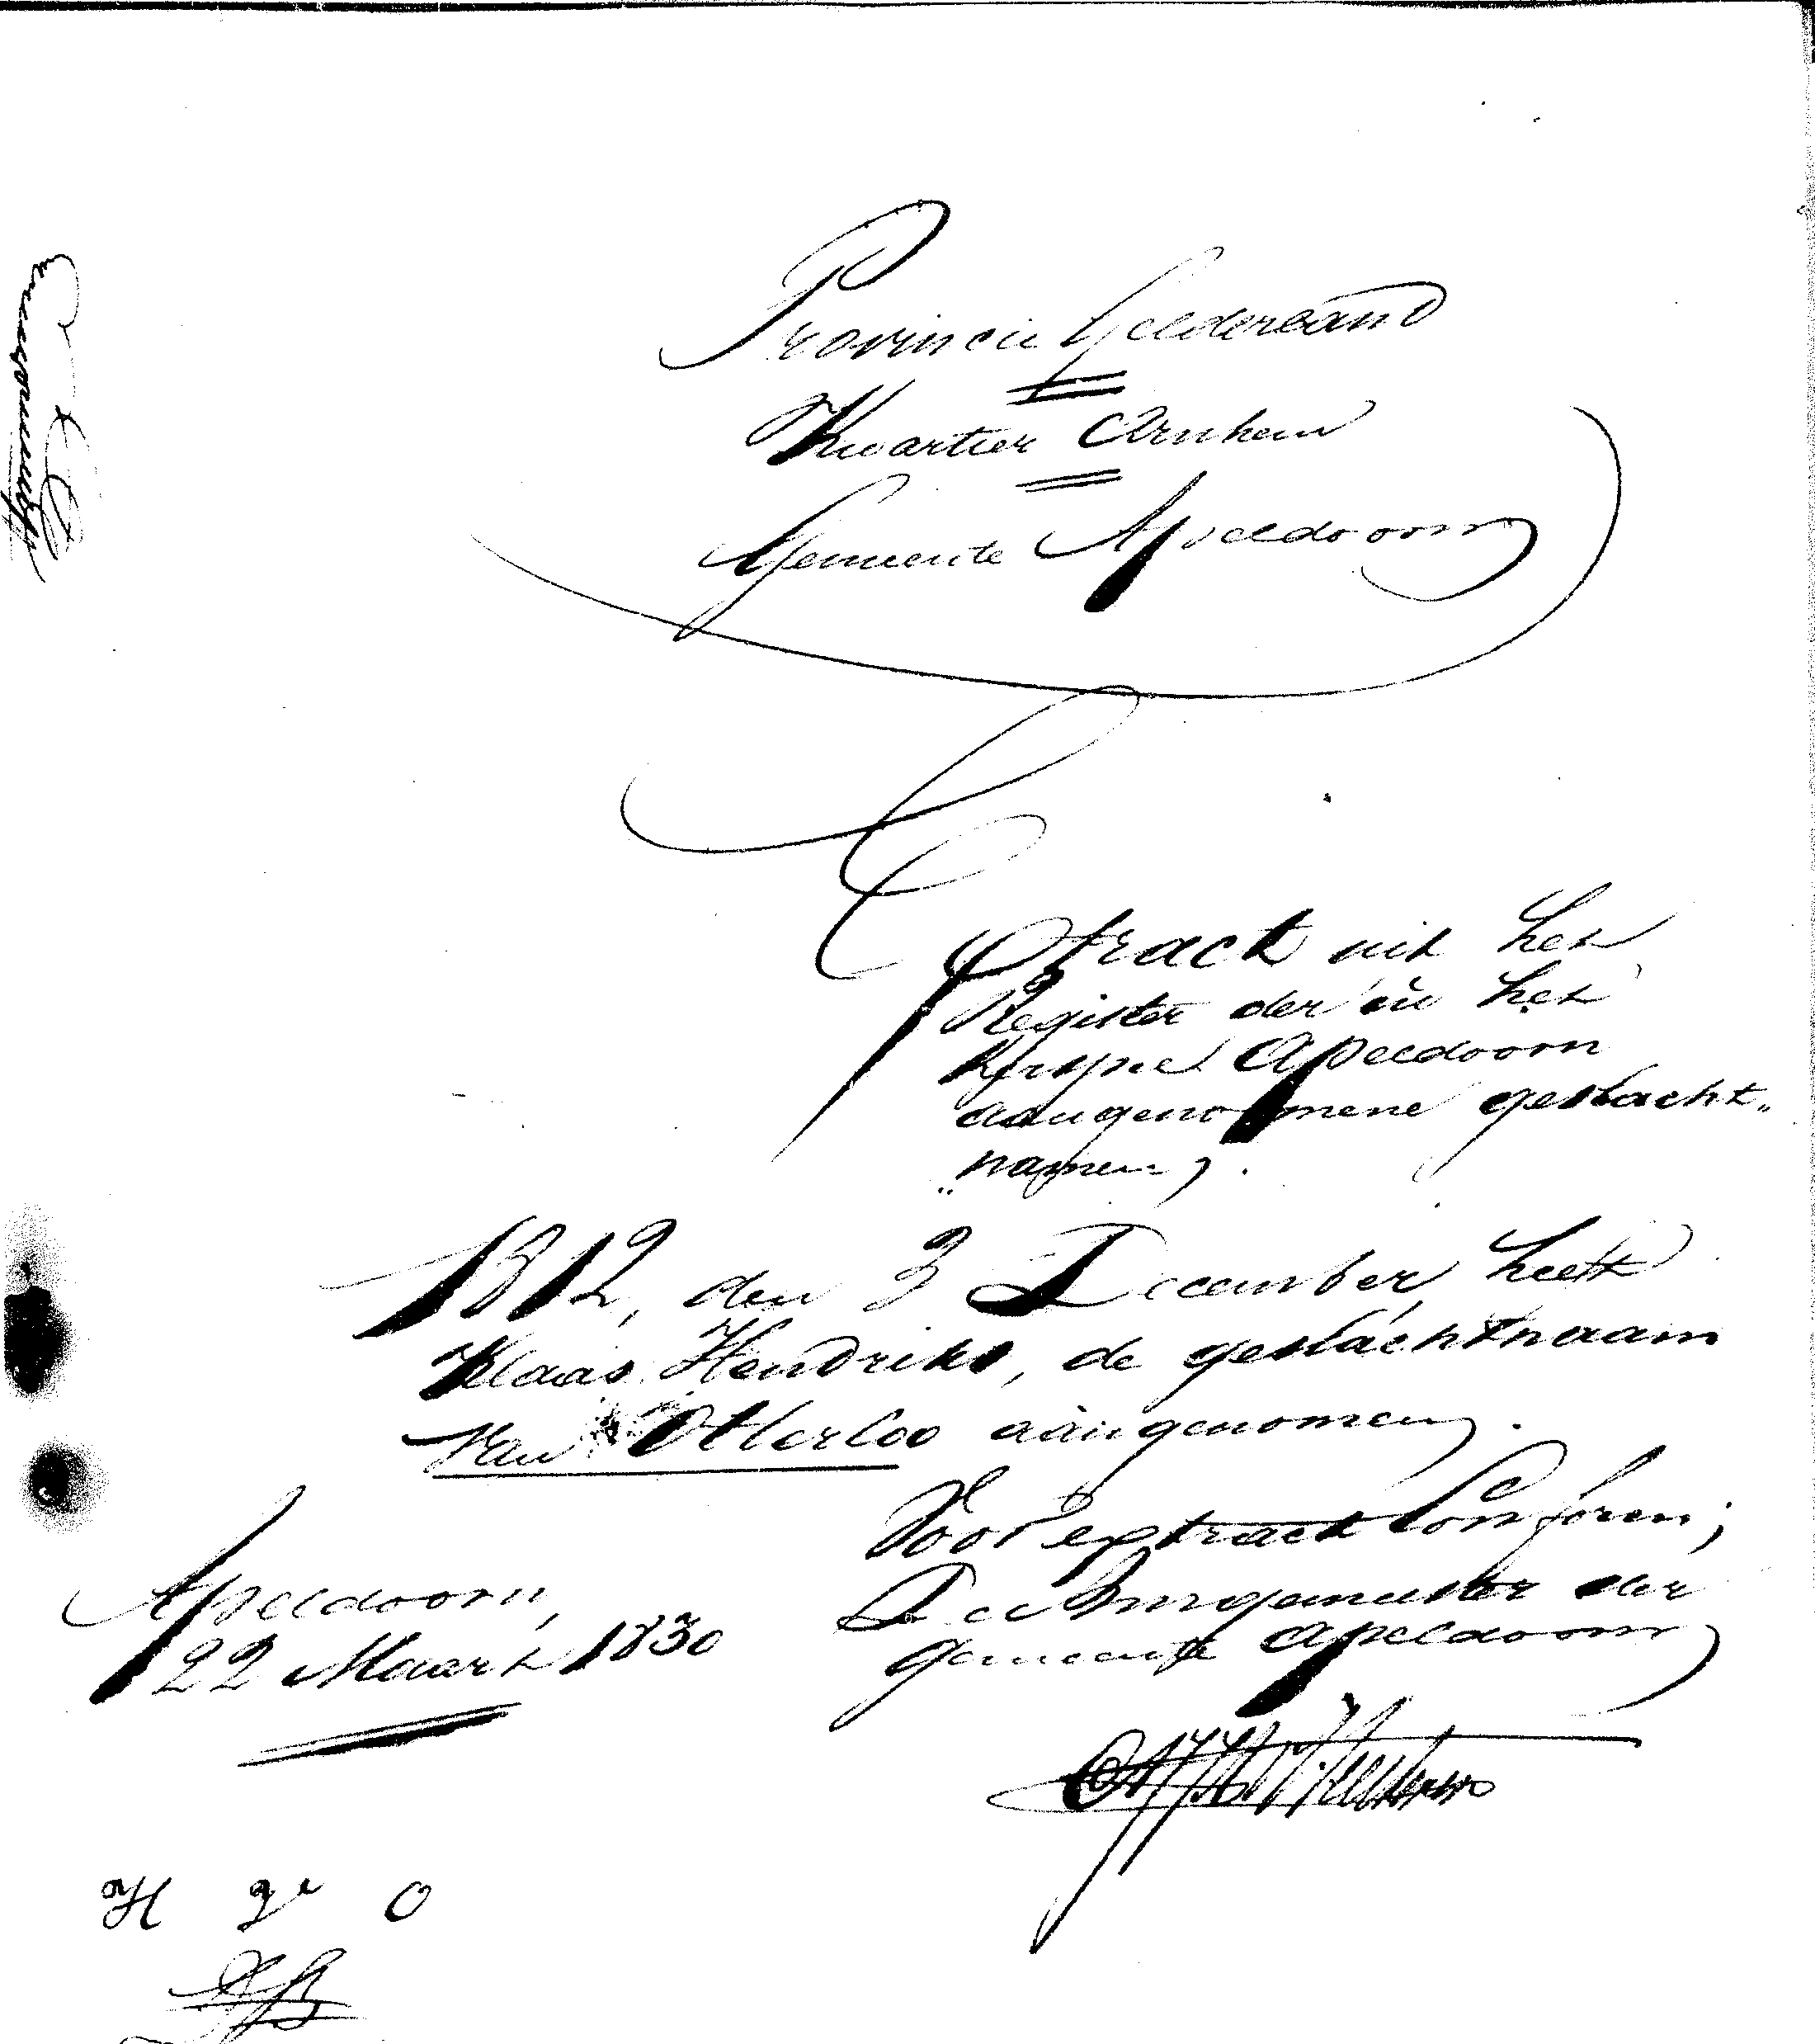 Provincie Gelderland
Kwartier Arnhem
Gemeente Apeldoorn
Extract uit het
Register der in het
Kerspel Apeldoorn
aangenomene geslacht„
„namen.
1812, den 3 December heeft
Klaas Hendriks, de geslachtnaam
Van Otterloo aangenomen.
Voor extract Conform;
De Burgemeester der
gemeente Apeldoorn
Apeldoorn,
22 Maart 1830
H ge O